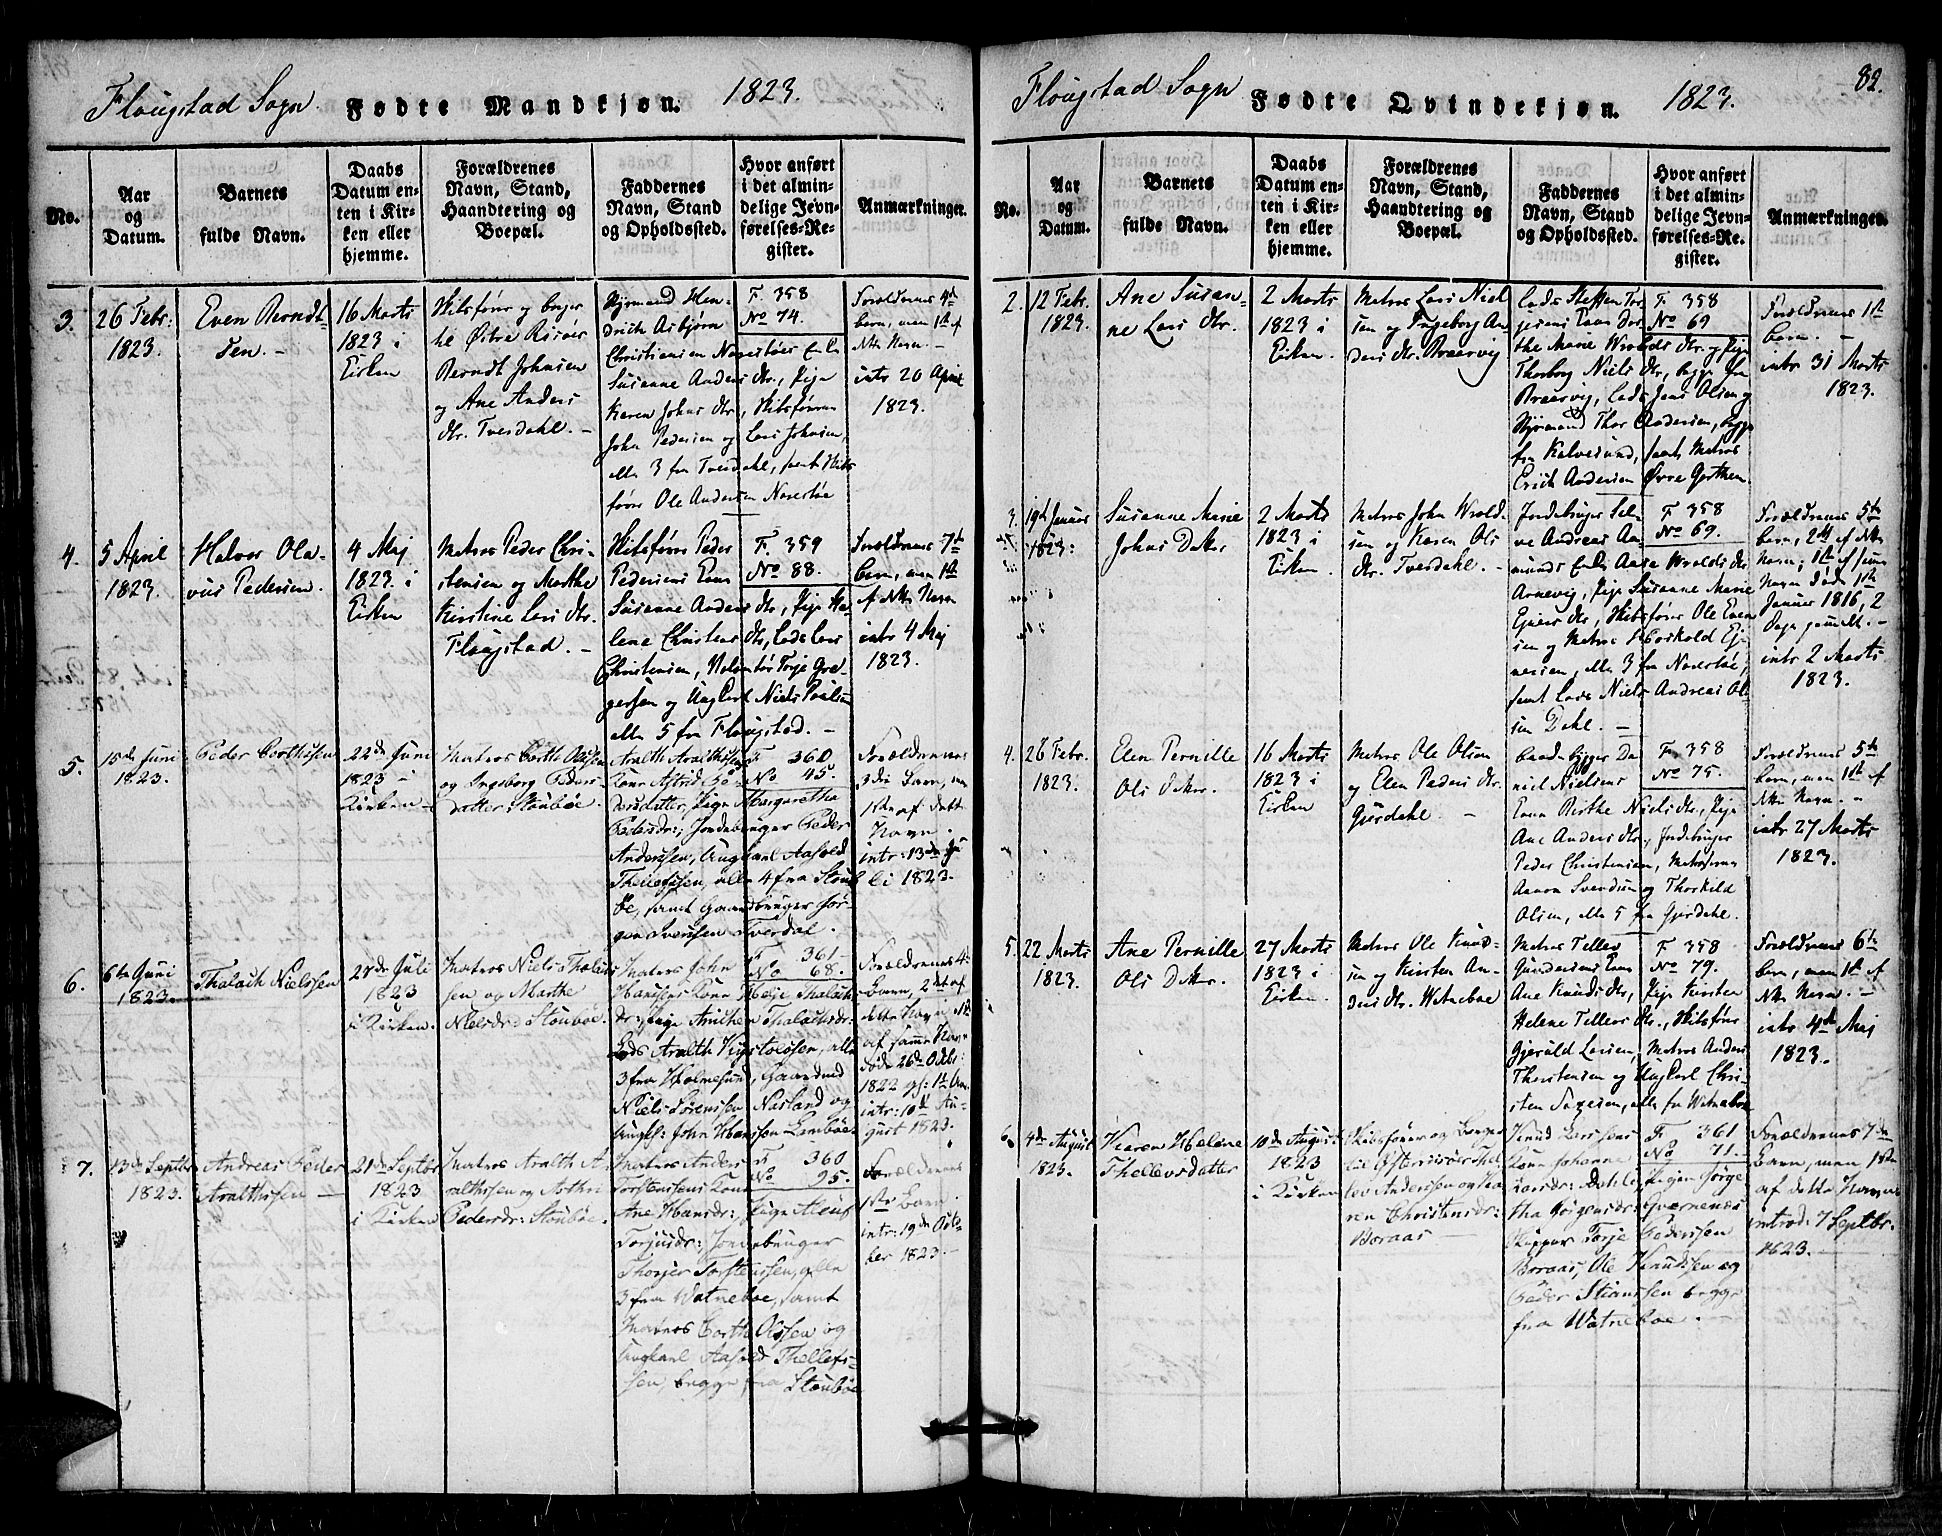 Flougstad Sogn. Fødte Mandkjøn. 1823.
No.
Aar
og
Datum.
Barnets
fulde Navn.
Daabs
Datum en-
ten i Kir-
ken eller
hjemme.
Forældrenes
Navn, Stand,
Haandtering og
Boepæl.
Faddernes
Navn, Stand
og Opholdssted.
Hvor anført
i det almin-
delige Jevn-
førelses-Re-
gister.
Anmærkninger.
3.
26 Febr:
1823.
Even Berndt-
sen. -
16 Marts
1823 i
Kirken
Skibsfører og borger
til Østre Risøer
Berndt Johnsen
og Ane Anders
dtr. Tverdahl. -
Styrmand Hen-
drich Asbjørn
Christiensen Narestøes
Susanne Anders dtr., Pige
Karen Johns dtr., Skibsføreren
John Pedersen og Lars Johnsen,
alle 3 fra Tverdahl, samt Skibs
fører Ole Andersen Narestøe
F. 358
No 74.
Forældrenes 4de
barn, men 1ste af
dette Navn. -
intr 20 April
1823.
4.
5 April
1823.
Halvor Ola-
vus Pedersen.
4 Maj
1823 i
Kirken
Matros Peder Chri-
stensen og Marthe
Kirstine Lars dtr.
Flougstad. -
Skibsfører Peder
Pedersens Kone
Susanne Anders dtr., Pige He-
lene Christens dtr., Lods Lars
Christensen, Terje Gre-
gersen og Ungkarl Niels Poulsen
alle 5 fra Flougstad. -
F. 359
No 88.
Forældrenes 7de
barn, men 1ste
af dette Navn
intr 4 Maj
1823.
5.
15de Juni
1823.
Peder Corthssen
22de Juni
1823 i
Kirken
Matros Corth Olssen
og Ingeborg Peders
datter Stoubøe.
Aralth Aralthssens
Kone Astrid Pe-
dersdatter, Pige Margaretha
Pedersdr:, Jordebruger Peder
Anderssen, Ungkarl Aasold
Thellefssen, alle 4 fra Stoub
øe, samt Gaardbruger Jør-
gen Iverssen Tverdal.
F 360
No 45.
Forældrenes
3die Barn, m
1ste af dette
Navn.
intr: 13de Ju-
li 1823.
6.
6te Juni
1823
Thalach Nielssen
27de Juli
1823
i Kirken.
Matros Niels Thalachs
sen og Marthe
Nielsdr: Stoubøe.
Matros John
Hanssens Kone Helje Thalach
dr:, Pige Anichen Thalachsdr:
Lods Aralth , alle
3 fra Holmesund, Gaardmd
Niels Sørenssen Nasland og
Ungk: John Hanssen Lambøe
F 361
No 68.
Forældrenes 4de
Barn, 2det af
dette Navn, 1ste
af samme Navn
døde 26de Octbr:
1822
intr: 10de Au-
gust 1823.
7.
13de Septbr
1823.
Andreas Peder
Aralthssen
21de Septbr
1823
i Kirken
Matros Aralth A-
ralthssen og Asthri
Pedersdr: Stoubøe.
Matros Anders
Torstenssens Kone
Ane Hansdr:, Pige Aleuf
Torjusdr: Jordebruger
Thorjer Torstenssen, alle
3 fra Watnebøe, samt
Matros Corth Olssen og
Ungkarl Aasold Thellefs-
sen, begge fra Stoubøe
F 360
No 95.
Forældrenes
1ste Barn.
intr: 19de Octo-
ber 1823.
Flougstad Sogn Fødte Qvindekjøn. 1823. 82.
No.
Aar
og
Datum.
Barnets
fulde Navn.
Daabs
Datum en-
ten i Kir-
ken eller
hjemme.
Forældrenes
Navn, Stand,
Haandtering og
Boepæl.
Faddernes
Navn, Stand
og Opholdssted.
Hvor anført
i det almin-
delige Jevn-
førelses-Re-
gister.
Anmærkninger.
2.
12 Febr.
1823.
Ane Susan-
ne Lars dtr.
2 Marts
1823 i
Kirken.
Matros Lars Niel
sen og Ingeborg An
ders dtr. Braarvig
Lods Steffen Ter-
jesens Kone Dor-
the Marie Wrolds dtr. og Pige
Thorborg Niels dtr., begge fra
Braarvig, Lods Jens Olsen og
Styrmand Thor Andersen, begge
fra Kalvesund, samt Matros
Erich Andersen Øvre Garthen
F. 358
No 69
Forældrenes 1ste
barn. -
intr 31 Marts
1823.
3.
19de Januar
1823.
Susanne Marie
Johns Dtter
2 Marts
1823 i
Kirken.
Matros John Wrold-
sen og Karen Ols
dtr. Tverdahl. -
Jordebruger Sal-
ve Andreas Aa-
munds Enke Aase Wrolds dtr
Arnevig, Pige Susanne Marie
Ejners dtr, Skibsfører Ole Even
sen og Matros Horskold Ej-
nersen, alle 3 fra Narestøe,
samt Lods Niels Andreas Ol
sen Dahl. -
F 358
No 69.
Forældrenes 5te
barn, 2det af dette
Navn, 1ste af samme
Navn døde 1ste
Januar 1816, 2
Dage gammelt. -
intr 2 Marts
1823.
4.
26 Febr.
1823.
Elen Pernille
Ols Dtter.
16 Marts
1823 i
Kirken
Matros Ole Olsen
og Elen Peders dtr.
Gjerdahl. -
baadbygger Da
niel Nielsens
Kone Birthe Niels dtr., Pige
Ane Anders dtr., Jordebruger
Peder Christensen, Matroserne
Aanon Svendsen og Thorkild
Olsen, alle 5 fra Gjerdahl.
F. 358
No 75.
Forældrenes 5te
barn, men 1ste af
dette Navn. -
intr 27 Marts
1823.
5.
22 Marts
1823.
Ane Pernille
Ols Dtter.
27 Marts
1823 i
Kirken.
Matros Ole Knud-
sen og Kirsten An-
ders dtr. Watnebøe
Matros Tellev
Gundersens Kone
Ane Knuds dtr., Pige Kirsten
Helene Tellevs dtr., Skibsfører
Gjeruld Larsen, Matros Anders
Thorstensen og Ungkarl Chri-
sten , alle fra Watnebøe
F. 358
No 79.
Forældrenes 6te
barn, men 1ste af
dette Navn. -
intr 4de Maj
1823.
6.
4de August
1823.
Karen Helene
Thellevsdatter
10de August
1823
i Kirken
Skibsfører og Borger
til Østerriisøer Thel
lev Anderssen og Ka
ren Christensdr:
Boraas
Knud Larssens
Kone Johanne
Larsdr: Dahl, Pigen Jørge
tha Jørgensdr:
Skipper Terje Pederssen
Boraas, Ole Knudssen og
Peder Stianssen begge
fra Watnebøe.
F. 361
No 71.
Forældrenes 7de
Barn, men 1ste
af dette Navn
introd: 7 Septbr.
1823.